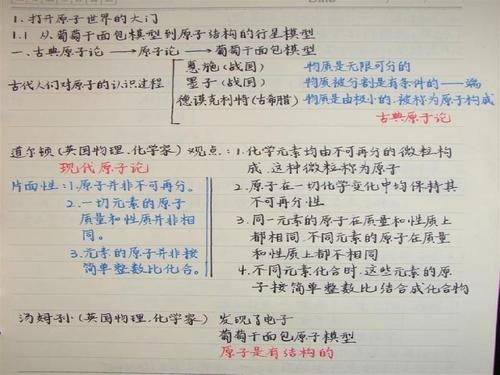 1. 打开原子世界的大门
1.1 从葡萄干面包模型到原子结构的行星模型
一、古典原子论 → 原子论 → 葡萄干面包模型
古代人们对原子的认识过程
惠施(战国) 物质是无限可分的
墨子(战国) 物质被分割是有条件的——端
德谟克利特(古希腊) 物质是由极小的.被称为原子构成
古典原子论
道尔顿(英国物理.化学家)观点:
现代原子论
1.化学元素均由不可再分的微粒构
成.这种微粒称为原子
2.原子在一切化学变化中均保持其
不可再分性
3.同一元素的原子在质量和性质上
都相同.不同元素的原子在质量
和性质上都不相同
4.不同元素化合时.这些元素的原
子按简单整数比结合成化合物
片面性:1.原子并非不可再分。
2.一切元素的原子
质量和性质并非相
同。
3.元素的原子并非按
简单整数比化合。
汤姆孙(英国物理.化学家) 发现了电子
葡萄干面包原子模型
原子是有结构的